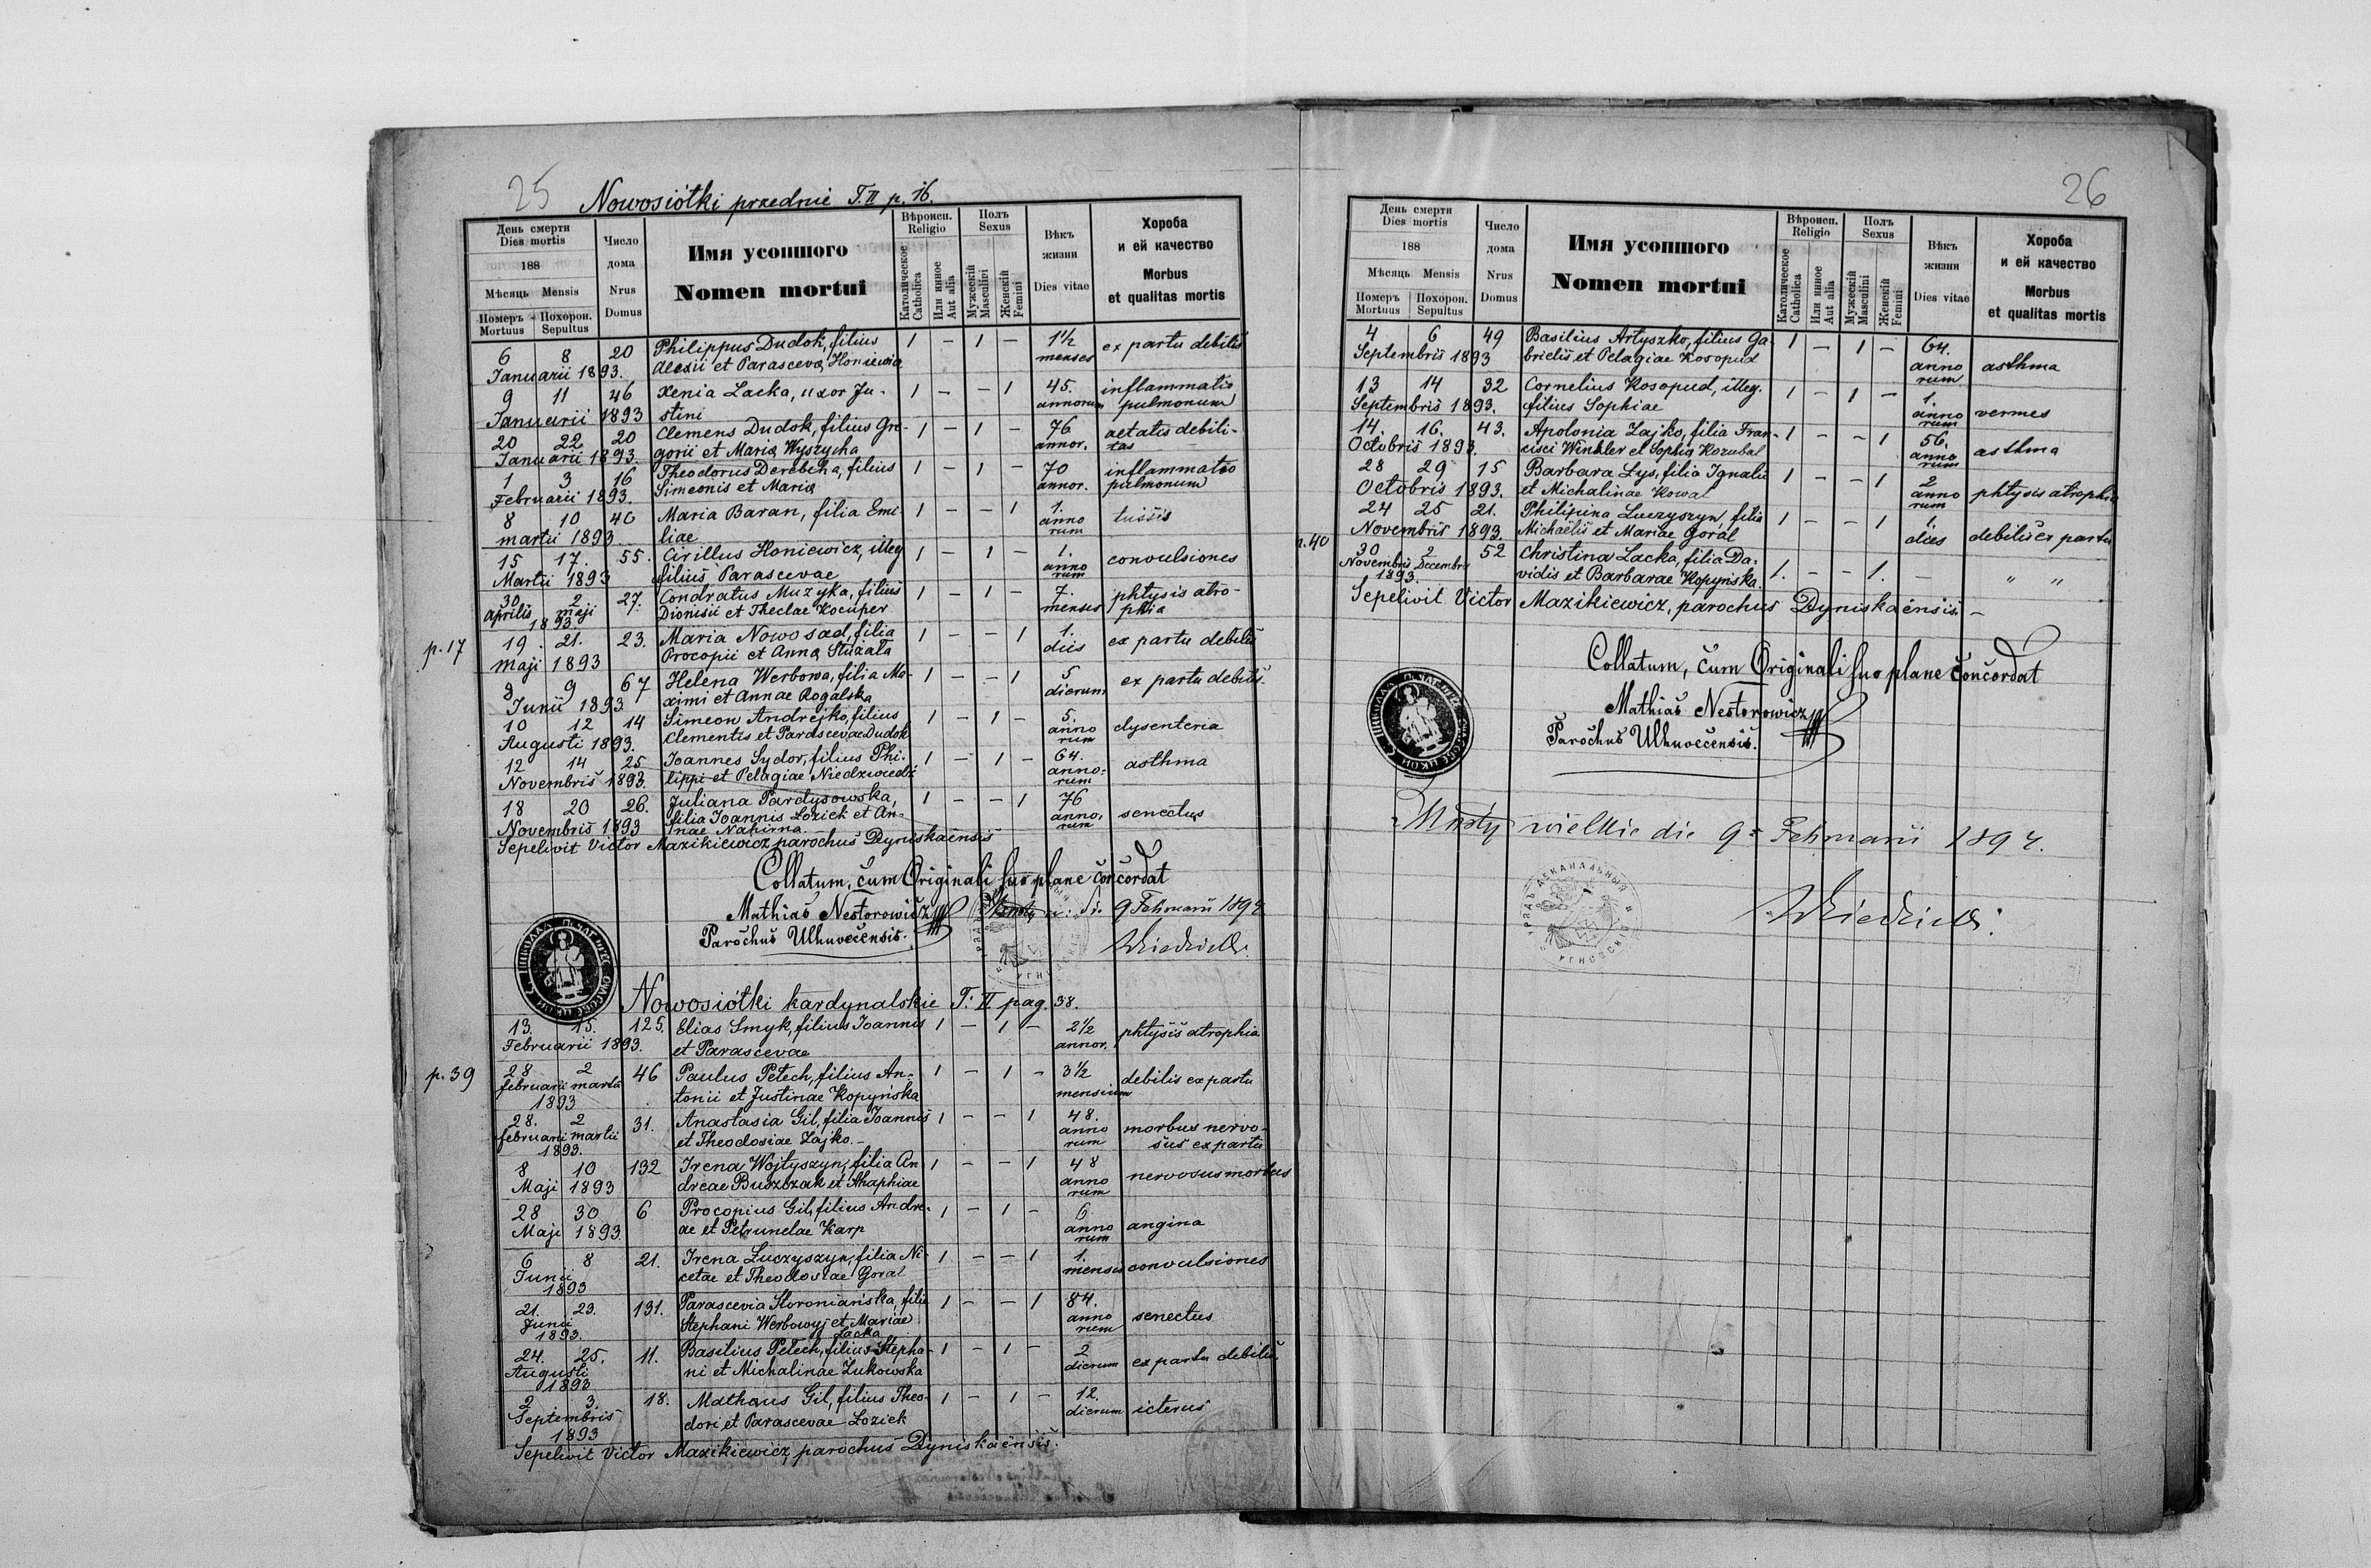 25
Nowosiółki przednie T. II p. 16.
День смерти
Dies mortis
188
Мѣсяць Mensis
Номеръ Mortuus
Похорон. Sepultus
Число дома
Nrus Domus
Имя усопшого
Nomen mortui
Вѣроисп.
Religio
Католическое Catholica
Или инное Aut alia
Полъ
Sexus
Мужескій Masculini
Женскій Femini
Вѣкъ жизни
Dies vitae
Хороба и ей качество
Morbus et qualitas mortis
6 8 20 Philippus Dudok, filius 1 – 1 – 1½ ex partu debilis
Januarii 1893. Alexii et Parasceva Honiewicz menses
9 11 46 Xenia Lacka, uxor Ju- 1 – – 1 45. inflammatio
Januarii 1893 stini annorum pulmonum
20 22 20 Clemens Dudok, filius Gre- 1 – 1 – 76 aetatis debili-
Januarii 1893. gorii et Maria Wyszycha annor. tas
1 3 16 Theodorus Derebcha, filius 1 – 1 – 70 inflammatio
Februarii 1893. Simeonis et Maria annor. pulmonum
8 10 40 Maria Baran, filia Emi- 1 – – 1 1. tussis
martii 1893 liae annorum
15 17. 55. Cirillus Honiewicz, illeg 1 – 1 – 1. convulsiones
Martii 1893 filius Parascevae annorum
30 2 27. Condratus Muzyka, filius 1 – 1 – 7. phtysis atro-
Aprilis maji 1893. Dionisii et Theclae Kocuper menses phia
p. 17
19. 21. 23. Maria Nowosad, filia 1 – – 1 1. ex partu debilis
maji 1893 Procopii et Anna diis
8 9 67 Helena Werbowa, filia Ma- 1 – – 1 5 ex partu debilis.
Junii 1893 ximi et Annae Rogalska dierum
10 12 14 Simeon Andrejko, filius 1 – 1 – 5. dysenteria
Augusti 1893. Clementis et Parascevae Dudok annorum
12 14 25 Joannes Sydor, filius Phi- 1 – 1 – 64. asthma
Novembris 1893. lippi et Pelagiae Niedzwiedź annorum
18 20 26. Juliana Pardysowska, 1 – – 1 76 senectus
Novembris 1893 filia Joannis Łozick et An- annorum
nae Nahirna
Sepelivit Victor Mazikiewicz parochus Dyniskaënsis
Collatum, cum Originali suo plane concordat
Mathias Nestorowicz
9 Februarii 1894
Parochus Ulhuvecensis.
Nowosiółki kardynalskie T: II pag. 38.
13. 15. 125. Elias Smyk, filius Joannis 1 – 1 – 2½ phtysis atrophia
Februarii 1893. et Parascevae annor.
p. 39
28 2 46 Paulus Petech, filius An- 1 – 1 – 3½ debilis ex partu
februarii martii 1893 tonii et Justinae Kopyńska mensium
28. 2 31. Anastasia Gil, filia Joannis 1 – – 1 48. morbus nervo-
februarii martii 1893. et Theodosiae Zajko. – annorum sus ex partu
8 10 132 Irena Wojtyszyn, filia An- 1 – – 1 48 nervosus morbus
Maji 1893 dreae Buszczak et Ahaphiae annorum
28 30 6 Procopius Gil, filius Andre- 1 – 1 – 6 angina
Maji 1893. ae et Petrunelae Karp annorum
6 8 21. Irena Łuczyszyn, filia Ni- 1 – – 1 1. convulsiones
Junii 1893 cetae et Theodosiae Goral mensis
21. 23. 131. Parascevia Storoniańska, filia 1 – – 1 84. senectus
Junii 1893. Stephani Werbowyj et Mariae Lacka annorum
24. 25. 11. Basilius Petech, filius Stepha- 1 – 1 – 2 ex partu debilis.
Augusti 1893 ni et Michalinae Żukowska dierum
2 3. 18. Mathaus Gil, filius Theo- 1 – 1 – 12. icterus
Septembris 1893 dori et Parascevae Łozick dierum
Sepelivit Victor Mazikiewicz, parochus Dyniskaënsis.
26
День смерти
Dies mortis
188
Мѣсяць Mensis
Номеръ Mortuus
Похорон. Sepultus
Число дома
Nrus Domus
Имя усопшого
Nomen mortui
Вѣроисп.
Religio
Католическое Catholica
Или инное Aut alia
Полъ
Sexus
Мужескій Masculini
Женскій Femini
Вѣкъ жизни
Dies vitae
Хороба и ей качество
Morbus et qualitas mortis
4 6 49 Basilius Artyszko, filius Ga- 1 – 1 – 64. asthma
Septembris 1893 brielis et Pelagiae Kosopud annorum
13 14 32 Cornelius Kosopud, illeg. 1 – 1 – 1. vermes
Septembris 1893. filius Sophiae annorum
14. 16. 43. Apolonia Zajko, filia Fran- 1 – – 1 56. asthma
Octobris 1893. cisci Winkler et Sophia Kozubal annorum
28 29 15 Barbara Lys, filia Ignatii 1 – – 1 2 phtysis atrophia
Octobris 1893. et Michalinae Kowal annorum
24 25 21. Philipina Łuczyszyn, filia 1 – – 1 1. debilis ex partu
Novembris 1893. Michaëlis et Mariae Goral dies
p. 40
30 2 52 Christina Lacka, filia Da- 1. – – 1. – " "
Novembris Decembris 1893. vidis et Barbarae Kopyńska.
Sepelivit Victor Mazikiewicz, parochus Dyniskaënsis. –
Collatum, cum Originali suo plane concordat
Mathias Nestorowicz
Parochus Ulhuvecensis.
Mosty wielkie die 9 Februarii 1894.